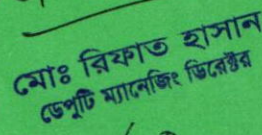 মোঃ রিফাত হাসান
ডেপুটি ম্যানেজিং ডিরেক্টর